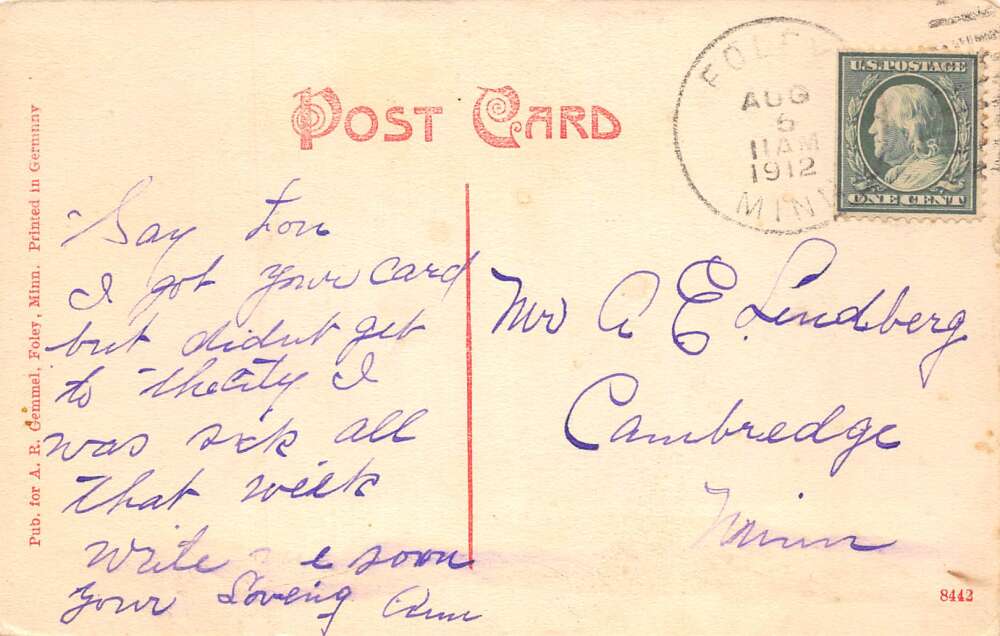 POST CARD
FOLEY
AUG
6
11 AM
1912
MINN
U.S. POSTAGE
ONE CENT
Pub. for A. R. Gemmel, Foley, Minn. Printed in Germany
Say
I got your card
but didnt get
to the city I
was sick all
that week
write soon
your Loveing
Mr A E Lindberg
Cambredge
Minn
8442